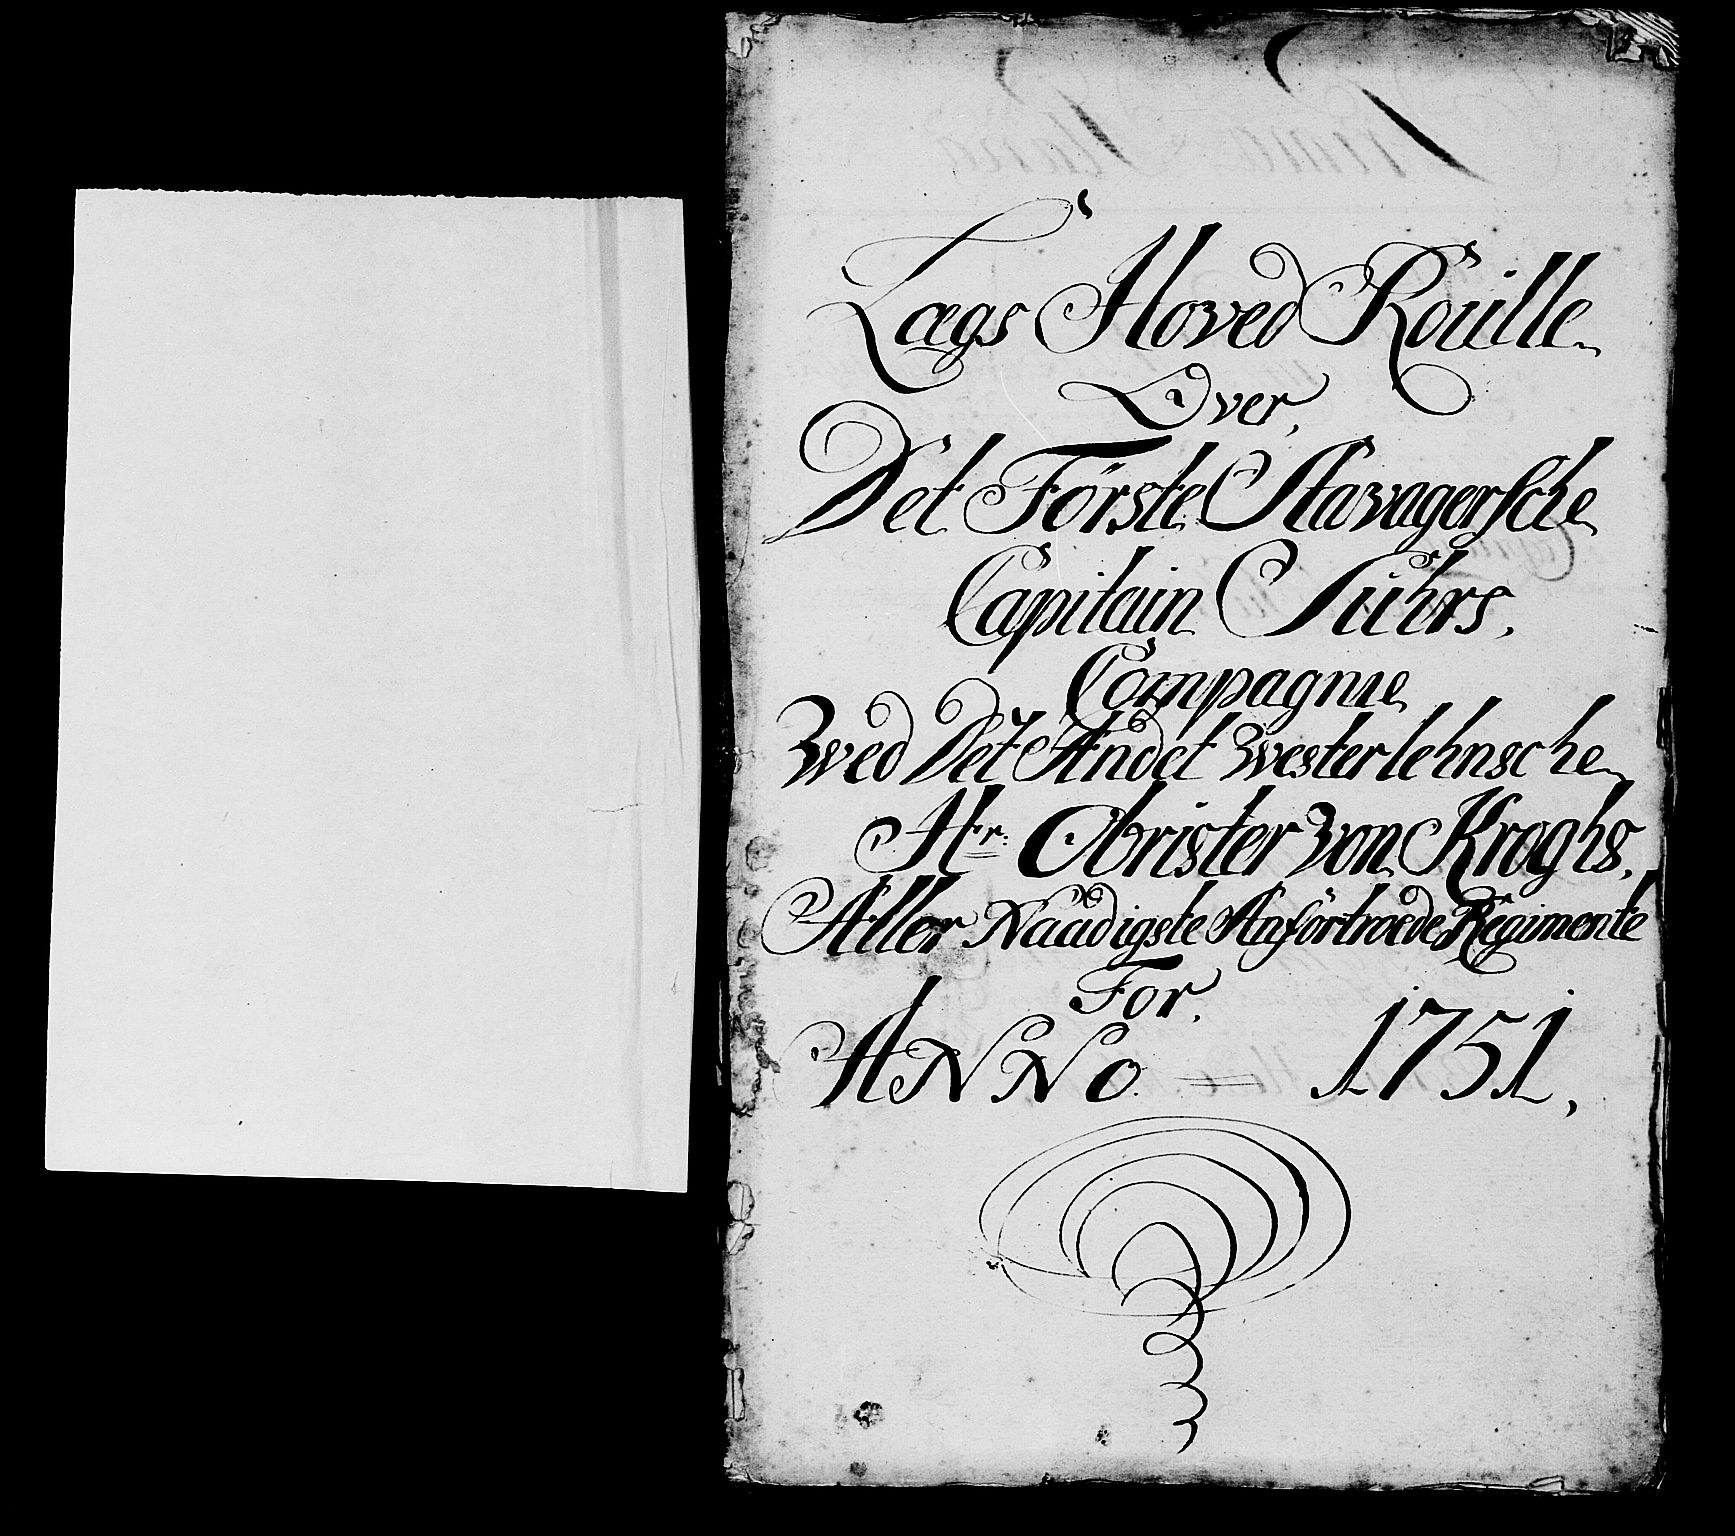 Lægs Hoved Roülle
Over,
Det Förste Stavagersche
Capitain Sührs,
Compagnie
Wed Det Andet Westerlehnsche
Hr: Obrister Von Kroghs,
Aller Naadigste Anfortroede Regimente
For,
ANNO = 1751,